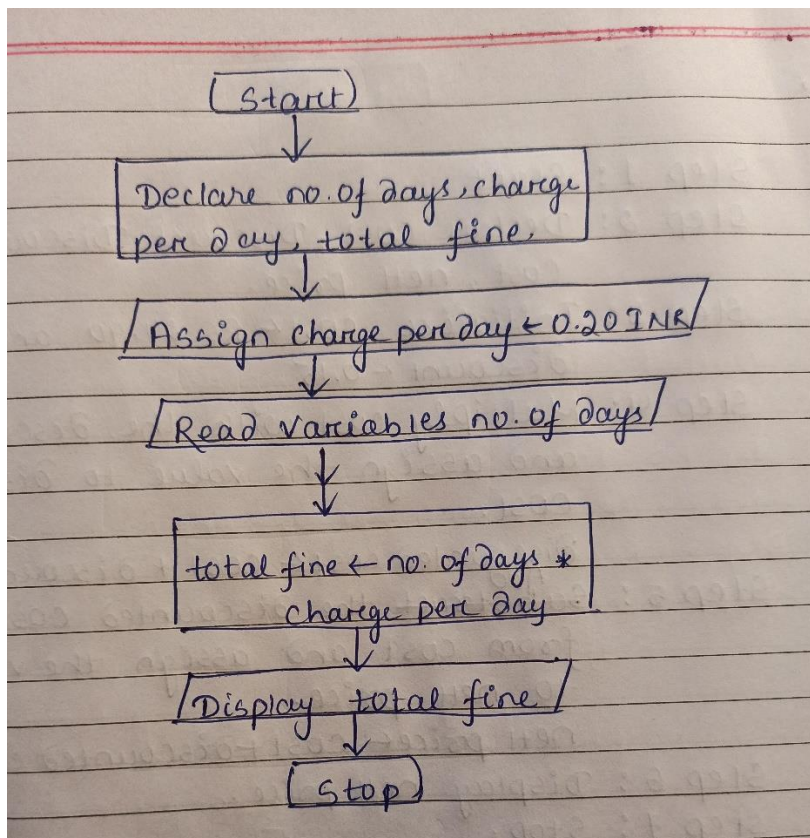 Start
Declare no. of days, charge
per day, total fine.
Assign charge per day ← 0.20 INR
Read variables no. of days
total fine ← no. of days *
charge per day
Display total fine
Stop